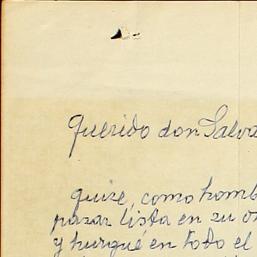 Querido don Salva
quize, como homb
pazar lista en su o
y hurgué en todo el